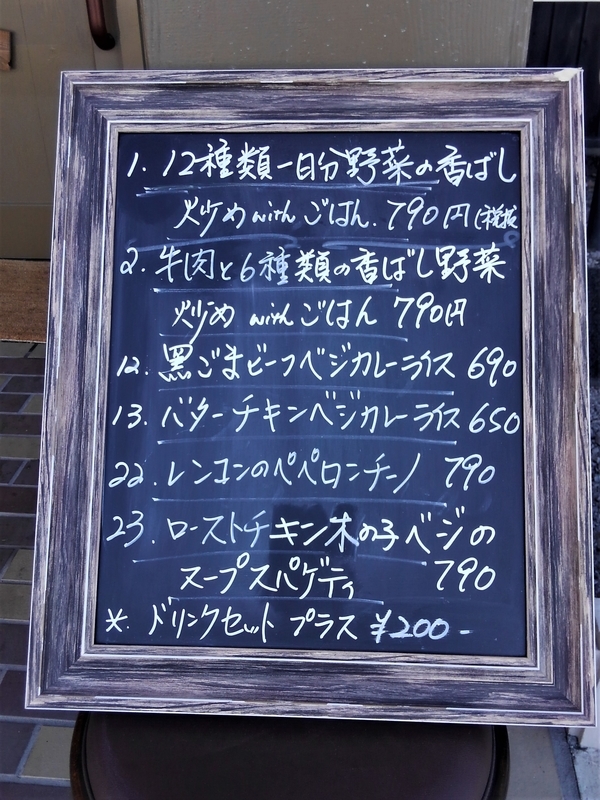 1. 12種類一日分野菜の香ばし
炒め with ごはん. 790円(税抜
2. 牛肉と6種類の香ばし野菜
炒め with ごはん 790円
12. 黒ごまビーフベジカレーライス 690
13. バターチキンベジカレーライス 650
22. レンコンのペペロンチーノ 790
23. ローストチキン木の子ベジの
スープスパゲティ 790
*. ドリンクセット プラス ¥200-